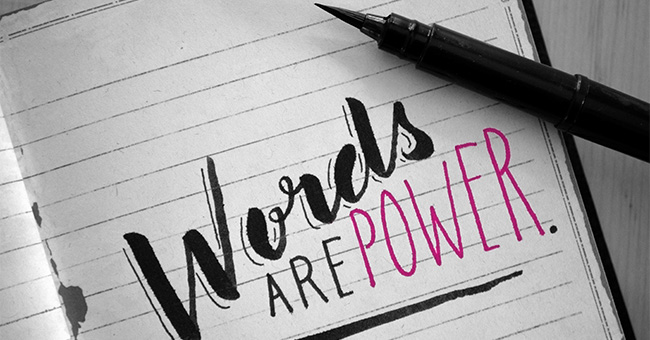 Words
ARE POWER.